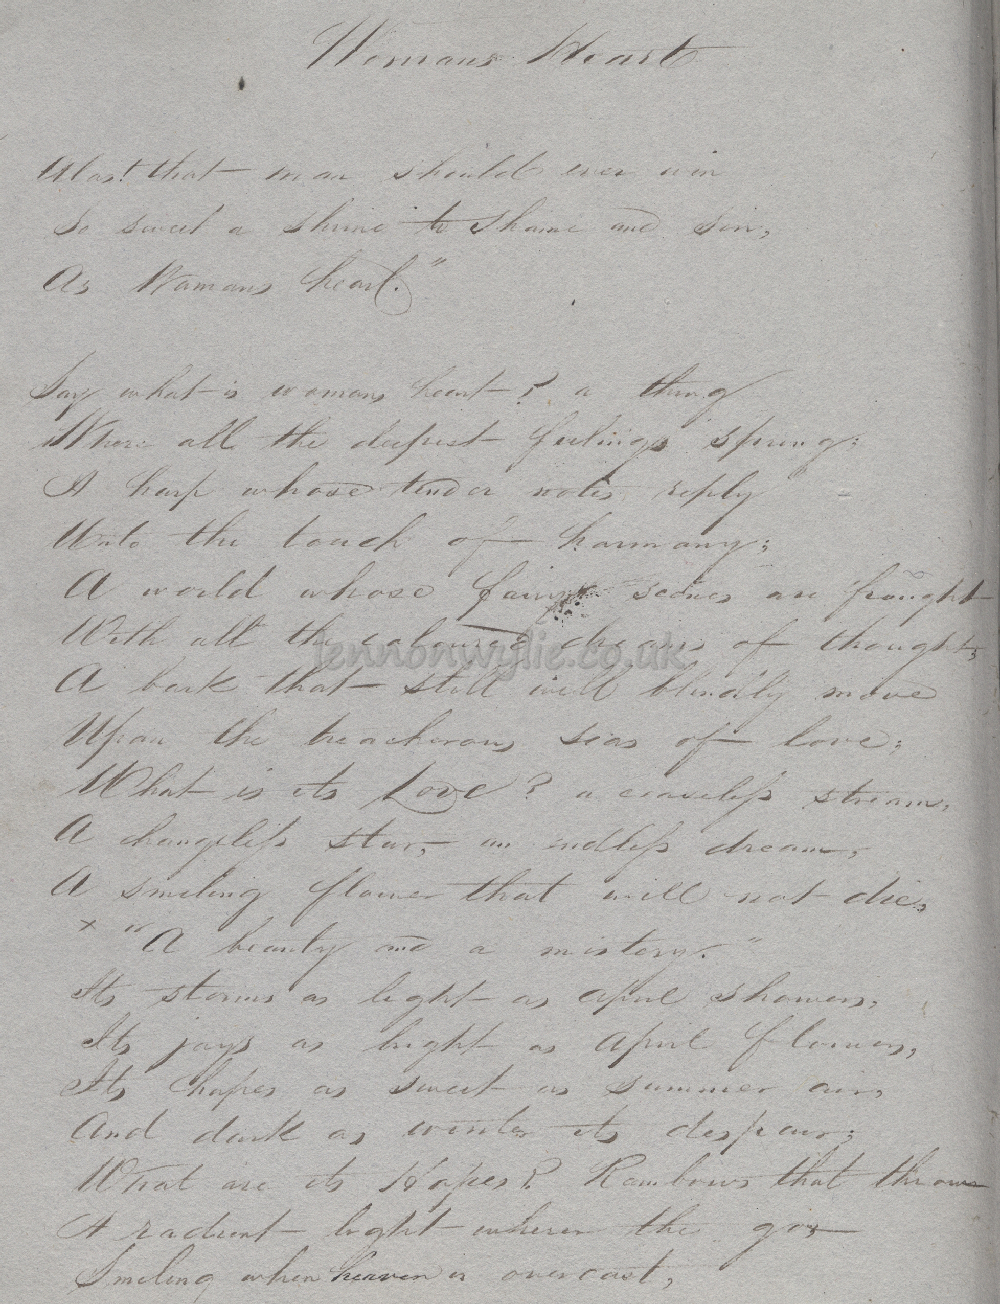 Womans Heart
Alas! that man should ever win
So sweet a shrine to shame and sin,
As Womans heart."
Say what is womans heart? a thing
Where all the deepest feelings spring;
A harp whose tender notes reply
Unto the touch of harmony;
A world whose fairy scenes are fraught
With all the coloured dreams of thought;
A bark that still will blindly move
Upon the treacherous seas of love;
What is its Love? a ceaseless stream,
A changeless star, an endless dream,
A smiling flower that will not die,
x "A beauty and a mistery."
Its storms as light as april showers,
Its joys as bright as April flowers,
Its hopes as sweet as summer air,
And dark as winter its despair;
What are its Hopes? Rainbows that throw
A radient light where the go
Smiling when heaven is overcast,
lennonwylie.co.uk